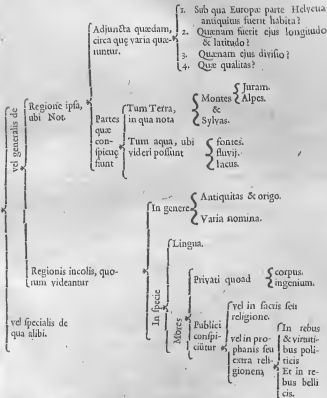 vel generalis de
Regione ipsa,
ubi Not.
Adjuncta quædam,
circa quę varia quæ-
runtur.
1. Sub qua Europæ parte Helvetia
antiquitus fuerit habita?
2. Quænam fuerit ejus longitudo
& latitudo?
3. Quænam ejus divisio?
4. Quæ qualitas?
Partes
quæ
con-
spicuę
sunt
Tum Terra,
in qua nota
Montes
&
Sylvas.
Juram.
Alpes.
Tum aqua, ubi
videri possunt
fontes.
fluvij.
lacus.
Regionis incolis, quo-
rum videantur
In genere
Antiquitas & origo.
Varia nomina.
In specie
Lingua.
Mores
Privati quoad
corpus.
ingenium.
Publici
conspi-
ciũtur
vel in factis seu
religione.
vel in pro-
phanis seu
extra reli-
gionem,
In rebus
& virtuti-
bus poli-
ticis
Et in re-
bus belli
cis.
vel specialis de
qua alibi.